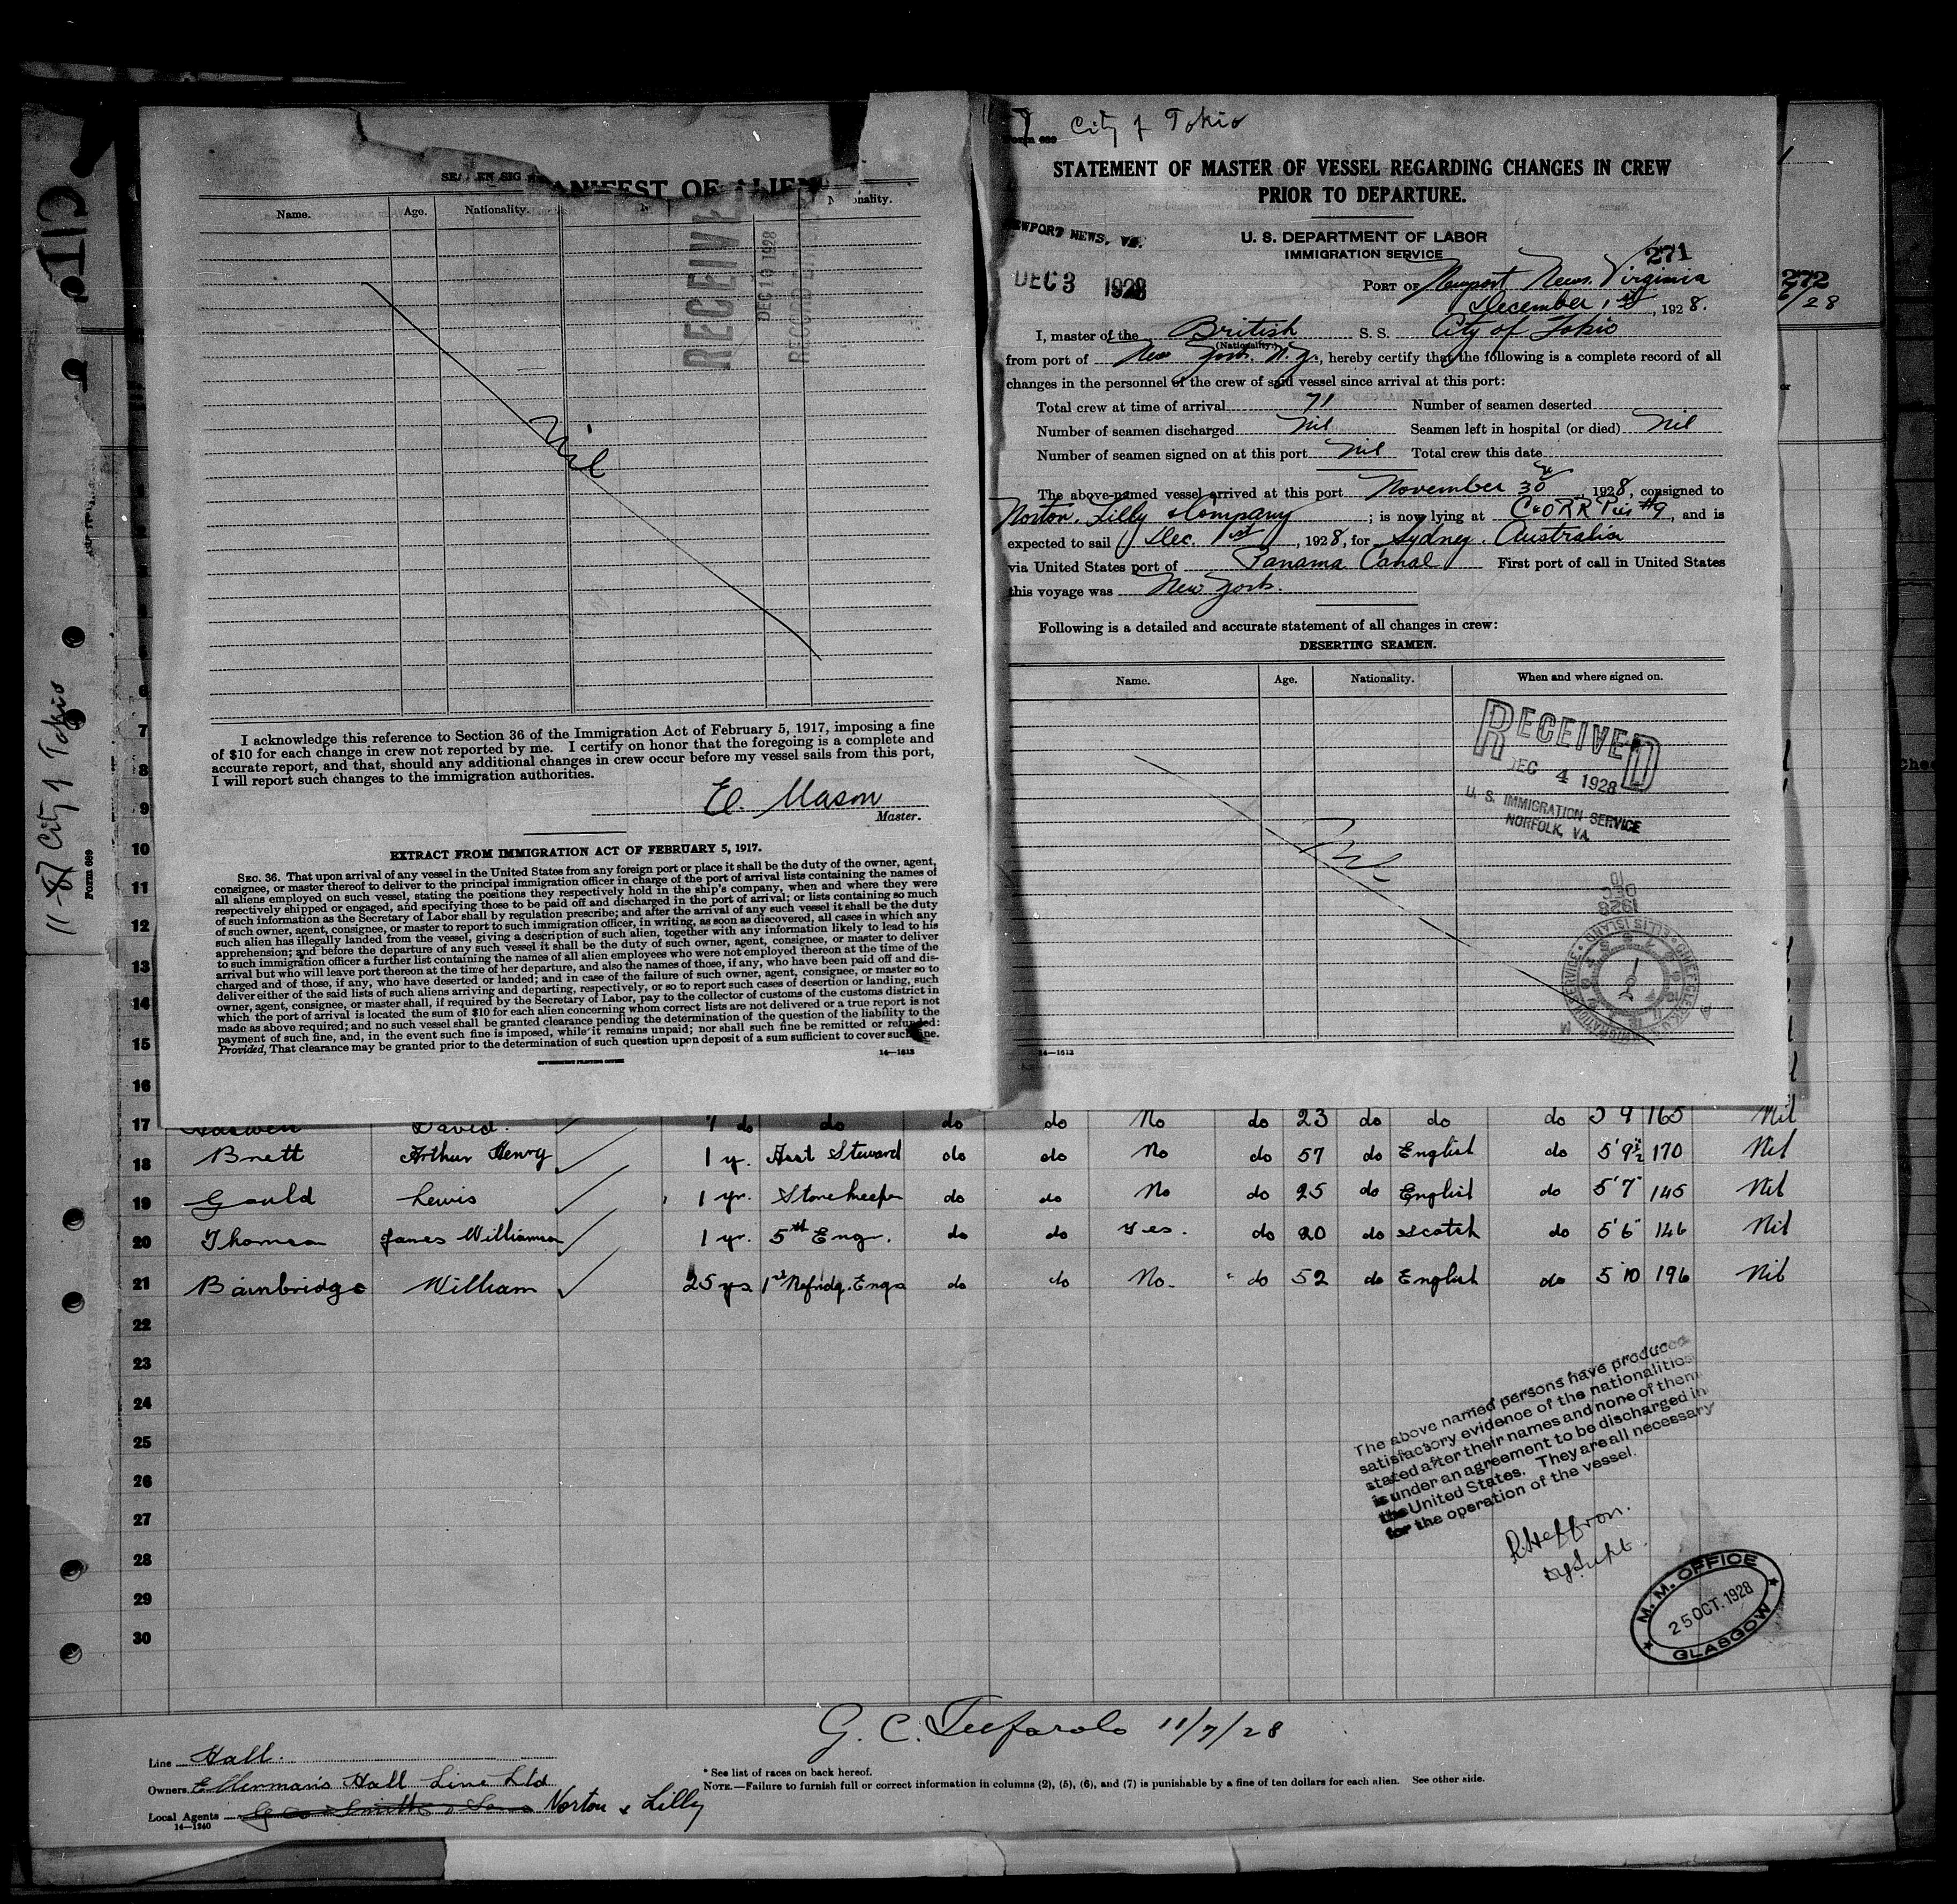 City of Tokio
STATEMENT OF MASTER OF VESSEL REGARDING CHANGES IN CREW
PRIOR TO DEPARTURE.
NEWPORT NEWS, VA.
DEC 3 1928
U. S. DEPARTMENT OF LABOR
IMMIGRATION SERVICE
271
PORT OF Newport News, Virginia
December 1st, 1928.
I, master of the British S. S. City of Tokio
(Nationality.)
from port of New York. N.Y., hereby certify that the following is a complete record of all
changes in the personnel of the crew of said vessel since arrival at this port:
Total crew at time of arrival 71 Number of seamen deserted
Number of seamen discharged Nil Seamen left in hospital (or died) Nil
Number of seamen signed on at this port Nil Total crew this date
The above-named vessel arrived at this port November 30, 1928, consigned to
Norton, Lilly & Company; is now lying at C&ORR Pier #9, and is
expected to sail Dec. 1st, 1928, for Sydney. Australia
via United States port of Panama Canal First port of call in United States
this voyage was New York.
Following is a detailed and accurate statement of all changes in crew:
DESERTING SEAMEN.
Name. Age. Nationality. When and where signed on.
RECEIVED
DEC 4 1928
U. S. IMMIGRATION SERVICE
NORFOLK, VA.
Nil
DEC
10
1928
14—1613
MANIFEST OF ALIEN
Name. Age. Nationality.
RECEIVE
DEC 10 1928
Nil
I acknowledge this reference to Section 36 of the Immigration Act of February 5, 1917, imposing a fine
of $10 for each change in crew not reported by me. I certify on honor that the foregoing is a complete and
accurate report, and that, should any additional changes in crew occur before my vessel sails from this port,
I will report such changes to the immigration authorities.
E. Mason
Master.
EXTRACT FROM IMMIGRATION ACT OF FEBRUARY 5, 1917.
SEC. 36. That upon arrival of any vessel in the United States from any foreign port or place it shall be the duty of the owner, agent,
consignee, or master thereof to deliver to the principal immigration officer in charge of the port of arrival lists containing the names of
all aliens employed on such vessel, stating the positions they respectively hold in the ship's company, when and where they were
respectively shipped or engaged, and specifying those to be paid off and discharged in the port of arrival; or lists containing so much
of such information as the Secretary of Labor shall by regulation prescribe; and after the arrival of any such vessel it shall be the duty
of such owner, agent, consignee, or master to report to such immigration officer, in writing, as soon as discovered, all cases in which any
such alien has illegally landed from the vessel, giving a description of such alien, together with any information likely to lead to his
apprehension; and before the departure of any such vessel it shall be the duty of such owner, agent, consignee, or master to deliver
to such immigration officer a further list containing the names of all alien employees who were not employed thereon at the time of the
arrival but who will leave port thereon at the time of her departure, and also the names of those, if any, who have been paid off and dis-
charged and of those, if any, who have deserted or landed; and in case of the failure of such owner, agent, consignee, or master so to
deliver either of the said lists of such aliens arriving and departing, respectively, or so to report such cases of desertion or landing, such
owner, agent, consignee, or master shall, if required by the Secretary of Labor, pay to the collector of customs of the customs district in
which the port of arrival is located the sum of $10 for each alien concerning whom correct lists are not delivered or a true report is not
made as above required; and no such vessel shall be granted clearance pending the determination of the question of the liability to the
payment of such fine, and, in the event such fine is imposed, while it remains unpaid; nor shall such fine be remitted or refunded:
Provided, That clearance may be granted prior to the determination of such question upon deposit of a sum sufficient to cover such fine.
GOVERNMENT PRINTING OFFICE 14—1613
11-87 City of Tokio
Form 689
272
/28
7
8
9
10
11
12
13
14
15
16
17 David. 7 do do do do No do 23 do do do 5 9 165 Nil
18 Brett Arthur Henry 1 y. Asst Steward do do No do 57 do English do 5'9½ 170 Nil
19 Gould Lewis 1 yr. Storekeeper do do No do 25 do English do 5'7" 145 Nil
20 Thomson James Williamson 1 yr. 5th Engr. do do Yes. do 20 do Scotch do 5'6" 146 Nil
21 Bainbridge William 25 yrs 1st Refridg. Engr do do No. do 52 do English do 5 10 196 Nil
22
23
24
25
26
27
28
29
30
The above named persons have produced
satisfactory evidence of the nationalities
stated after their names and none of them
is under an agreement to be discharged in
the United States. They are all necessary
for the operation of the vessel.
R. Heffron.
Dy Supt.
M. M. OFFICE
25 OCT. 1928
GLASGOW
11/7/28
Line Hall.
Owners Ellerman's Hall Line Ltd
Local Agents Geo Smith & Sons Norton & Lilly
14—1240
* See list of races on back hereof.
NOTE.—Failure to furnish full or correct information in columns (2), (5), (6), and (7) is punishable by a fine of ten dollars for each alien. See other side.